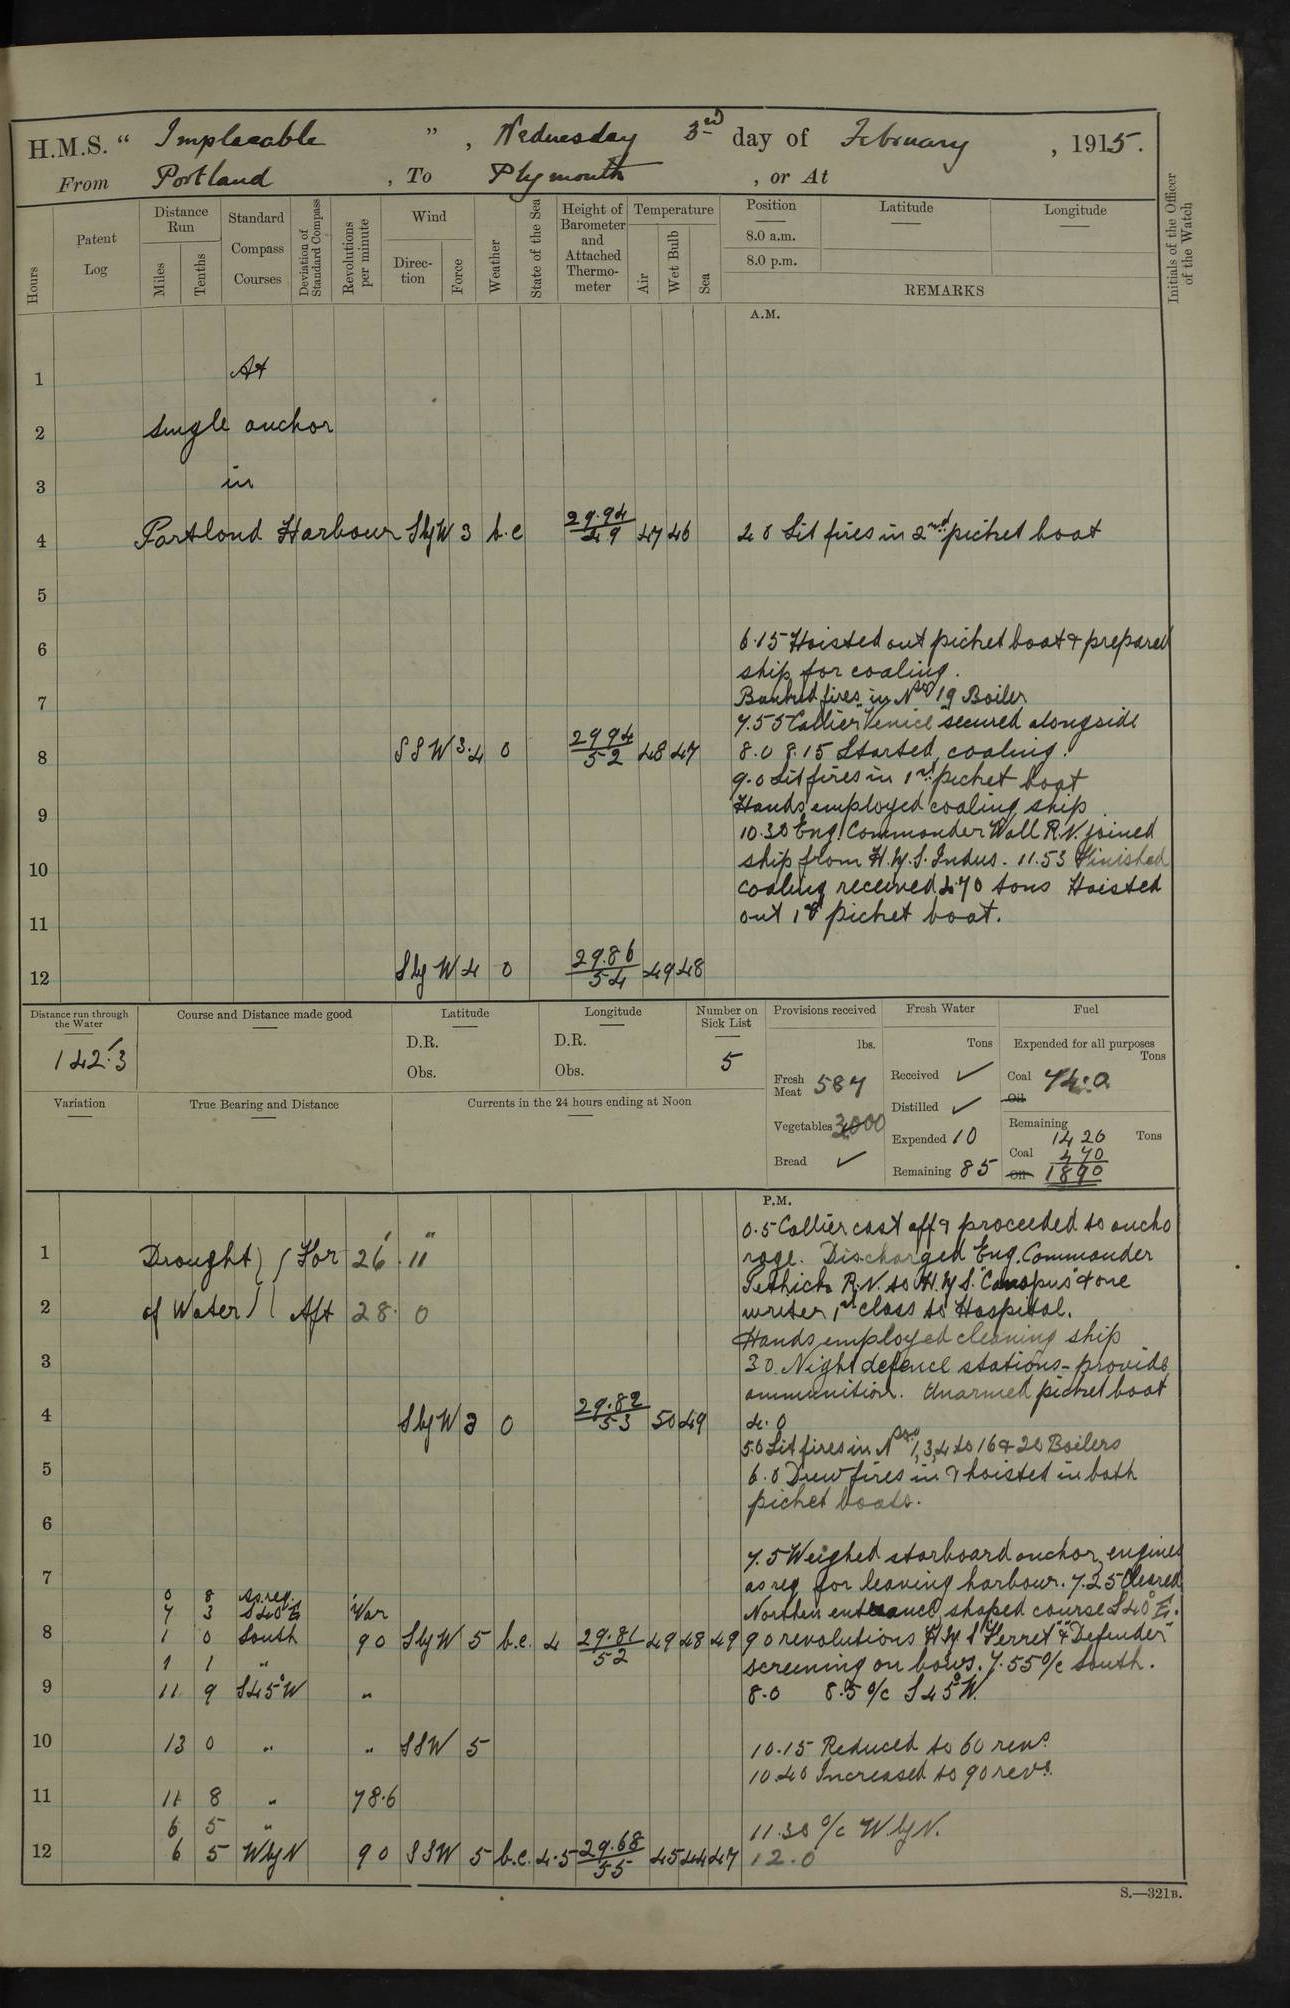 H.M.S. “ Implacable ” , Wednesday 3rd day of February , 1915.
From Portland , To Plymouth , or At
Hours
Patent Log
Distance Run
Miles
Tenths
Standard Compass Courses
Deviation of Standard Compass
Revolutions per minute
Wind
Direction
Force
Weather
State of the Sea
Height of Barometer and Attached Thermometer
Temperature
Air
Wet Bulb
Sea
Position
8.0 a.m.
8.0 p.m.
Latitude
Longitude
REMARKS
Initials of the Officer of the Watch
A.M.
1 At
2 single anchor
3 in
4 Portland Harbour SbyW 3 b.c 29.94/49 47 46 4 0 Lit fires in 2nd picket boat
5
6 6.15 Hoisted out picket boat & prepared
ship for coaling.
7 Banked fires in Nos 19 Boiler
7.55 Collier "Venice" secured alongside
8 SSW 3.4 0 29 94/52 48 47 8.0 8.15 Started coaling.
9.0 Lit fires in 1st picket boat
9 Hands employed coaling ship
10.30 Eng. Commander Wall R.N. joined
10 ship from H.M.S. Indus. 11.53 Finished
coaling received 470 tons Hoisted
11 out 1st picket boat.
12 SbyW 4 0 29.86/54 49 48
Distance run through the Water
142.3
Course and Distance made good
Latitude
D.R.
Obs.
Longitude
D.R.
Obs.
Number on Sick List
5
Provisions received
lbs.
Fresh Meat 587
Vegetables 3000
Bread ✓
Fresh Water
Tons
Received ✓
Distilled ✓
Expended 10
Remaining 85
Fuel
Expended for all purposes
Tons
Coal 74.0
Oil
Remaining
Tons
1420
Coal 470
Oil 1890
Variation
True Bearing and Distance
Currents in the 24 hours ending at Noon
P.M.
0.5 Collier cast off & proceeded to ancho
1 Draught For 26' 11" rage. Discharged Eng. Commander
R.N. to H.M.S. "Canopus" & one
2 of Water Aft 28. 0 writer 1st class to Hospital.
Hands employed cleaning ship
3 3 0. Night defence stations - provide
ammunition. Unarmed picket boat
4 SbyW 3 0 29.82/53 50 49 4.0
5.0 Lit fires in Nos 1,3,4 to 16 & 20 Boilers
5 6.0 Drew fires in & hoisted in both
picket boats.
6
7.5 Weighed starboard anchor, engines
7 as req for leaving harbour. 7.25 Cleared
0 8 As req.
7 3 S40°E Var Northern entrance, shaped course S40°E.
8 1 0 South 90 SbyW 5 b.c. 4 29.81/52 49 48 49 90 revolutions H.M.S "Ferret" & "Defender"
1 1 " screening on bows. 7.55 o/c South.
9 11 9 S45°W " 8.0 8.5 o/c S45°W.
10 13 0 " " SSW 5 10.15 Reduced to 60 revs.
10.40 Increased to 90 revs.
11 11 8 " 78.6
6 5 " 11.30 o/c WbyN.
12 6 5 WbyN 90 SSW 5 b.c. 4.5 29.68/55 45 44 47 12.0
S.—321B.